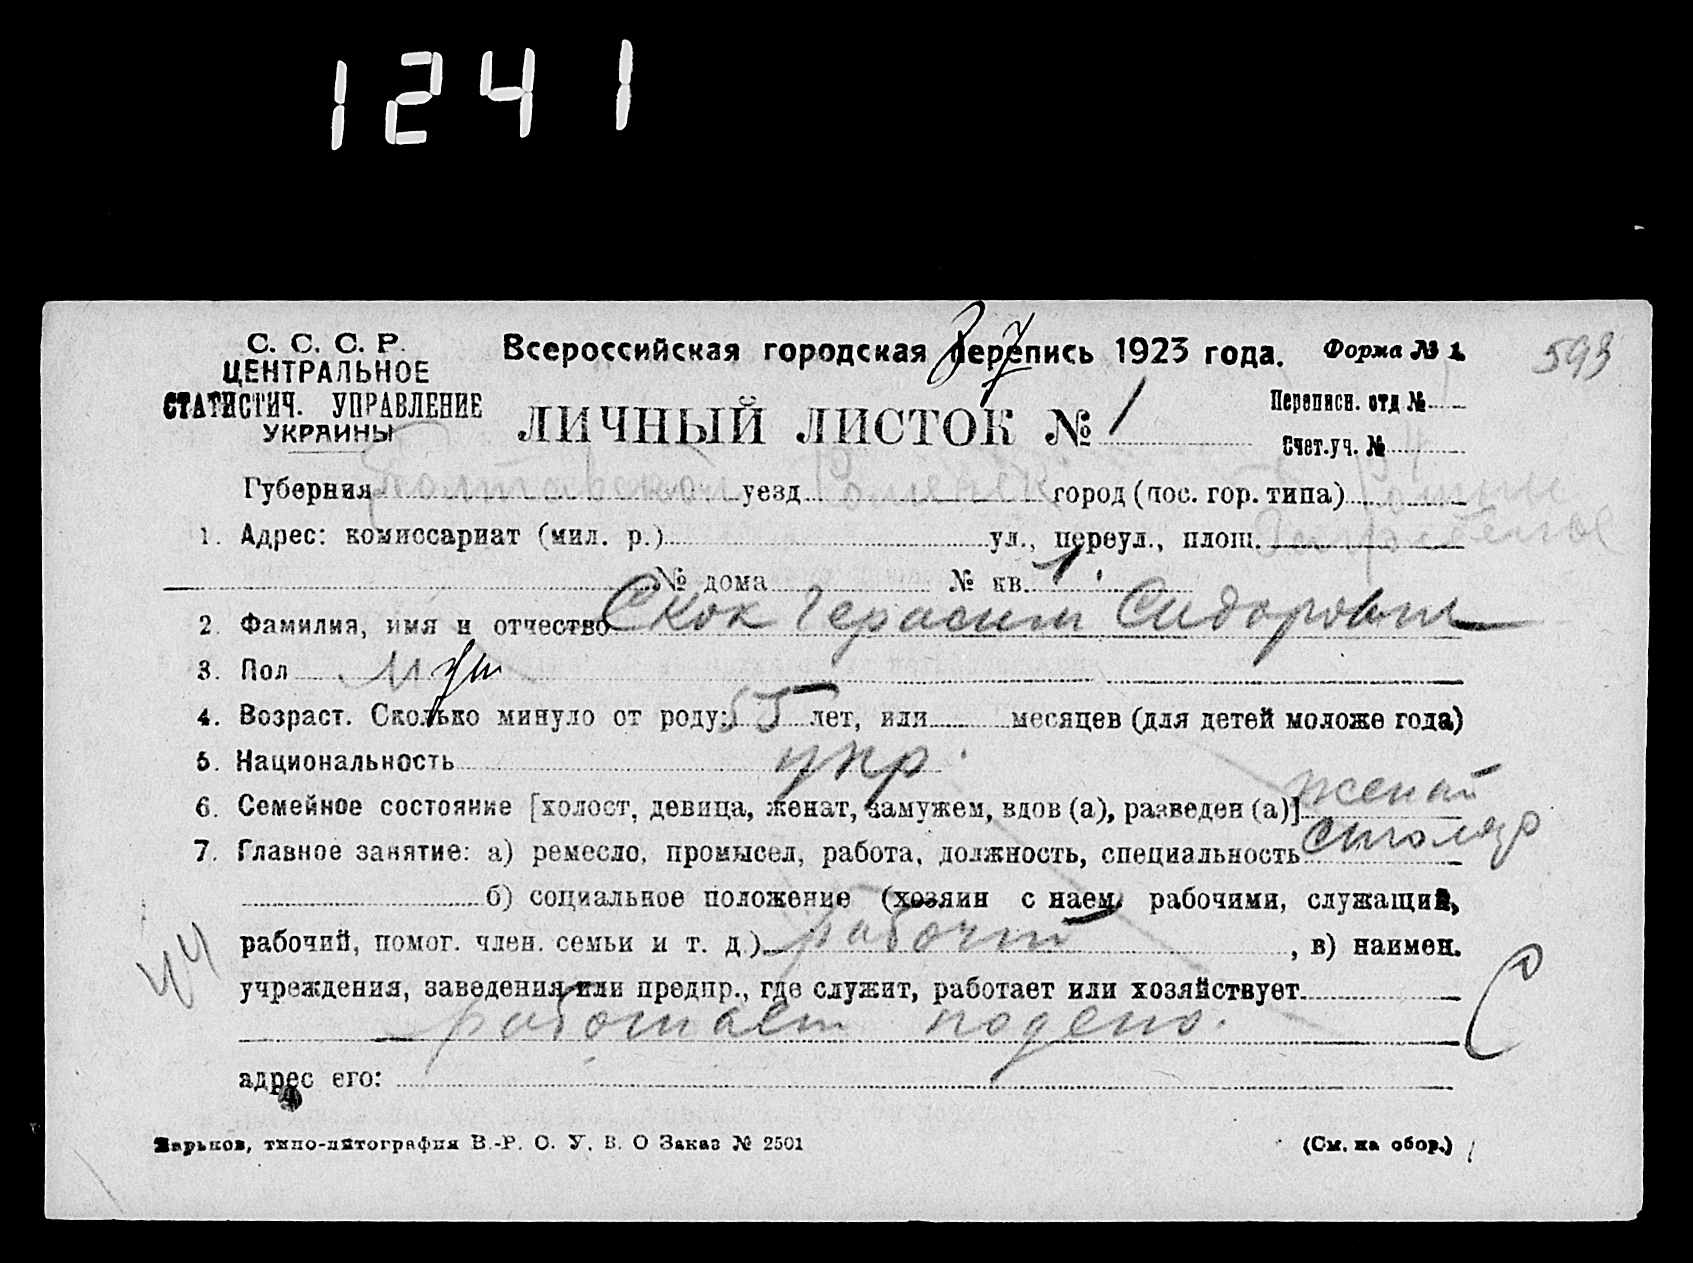 1241
С. С. С. Р.
ЦЕНТРАЛЬНОЕ
СТАТИСТИЧ. УПРАВЛЕНИЕ
УКРАИНЫ
Всероссийская городская перепись 1923 года.
Форма № 1.
593
37
ЛИЧНЫЙ ЛИСТОК № 1
Переписн. отд №
Счет.уч. №
Губерния Полтавская уезд Роменск город (пос. гор. типа) Ромны
1. Адрес: комиссариат (мил. р.) ул., переул., площ.
№ дома № кв. 1
2. Фамилия, имя и отчество Скок Герасим Сидорович
3. Пол Муж
4. Возраст. Сколько минуло от роду: 55 лет, или месяцев (для детей моложе года)
5. Национальность укр.
6. Семейное состояние [холост, девица, женат, замужем, вдов (а), разведен (а)] женат
7. Главное занятие: а) ремесло, промысел, работа, должность, специальность столяр
б) социальное положение (хозяин с наем. рабочими, служащий,
рабочий, помог. член. семьи и т. д.) рабочий, в) наимен.
учреждения, заведения или предпр., где служит, работает или хозяйствует
работает подено.
адрес его:
Харьков, типо-литография В.-Р. О. У. В. О Заказ № 2501
(См. на обор.)